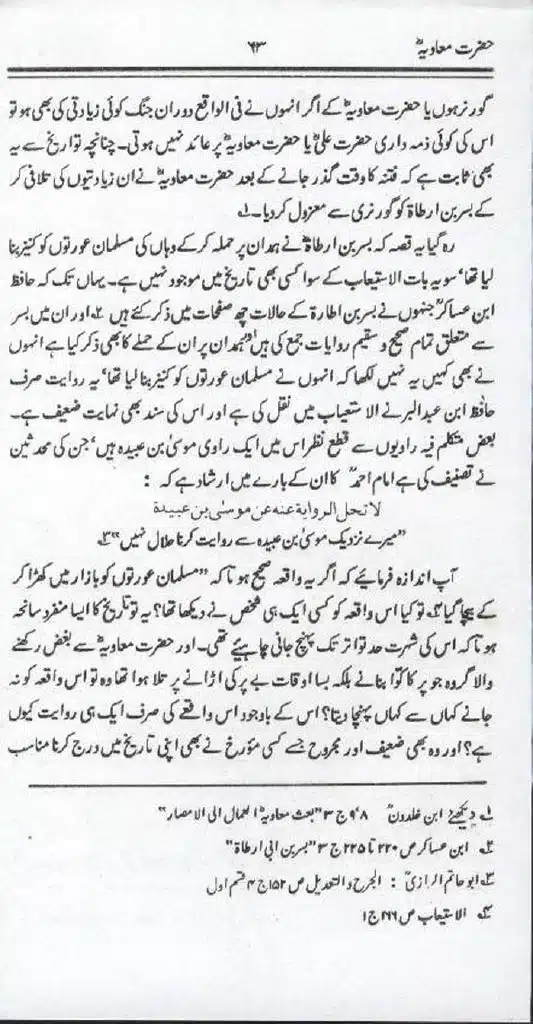 حضرت معاویہؓ ۶۳
گورنر ہوں یا حضرت معاویہؓ کے اگر انہوں نے فی الواقع دوران جنگ کوئی زیادتی کی بھی ہو تو
اس کی کوئی ذمہ داری حضرت علیؓ یا حضرت معاویہؓ پر عائد نہیں ہوتی۔ چنانچہ تواریخ سے یہ
بھی ثابت ہے کہ فتنہ کا وقت گذر جانے کے بعد حضرت معاویہؓ نے ان زیادتیوں کی تلافی کر
کے بسر بن ارطاۃ کو گورنری سے معزول کر دیا۔۱؎
رہ گیا یہ قصہ کہ بسر بن ارطاۃؓ نے ہمدان پر حملہ کر کے وہاں کی مسلمان عورتوں کو کنیز بنا
لیا تھا' سو یہ بات الاستیعاب کے سوا کسی بھی تاریخ میں موجود نہیں ہے۔ یہاں تک کہ حافظ
ابن عساکرؒ جنہوں نے بسر بن ارطارۃ کے حالات چھ صفحات میں ذکر کئے ہیں ۲؎ اور ان میں بسر
سے متعلق تمام صحیح و سقیم روایات جمع کی ہیں' ہمدان پر ان کے حملے کا بھی ذکر کیا ہے انہوں
نے بھی کہیں یہ نہیں لکھا کہ انہوں نے مسلمان عورتوں کو کنیز بنا لیا تھا' یہ روایت صرف
حافظ ابن عبدالبر نے الاستیعاب میں نقل کی ہے اور اس کی سند بھی نہایت ضعیف ہے۔
بعض متکلم فیہ راویوں سے قطع نظر اس میں ایک راوی موسیٰ بن عبیدہ ہیں' جن کی محدثین
نے تصنیف کی ہے امام احمدؒ کا ان کے بارے میں ارشاد ہے کہ :
لا تحل الروایۃ عنہ عن موسیٰ بن عبیدۃ
"میرے نزدیک موسیٰ بن عبیدہ سے روایت کرنا حلال نہیں"۳؎
آپ اندازہ فرمائیے کہ اگر یہ واقعہ صحیح ہوتا کہ "مسلمان عورتوں کو بازار میں کھڑا کر
کے بیچا گیا۴؎ تو کیا اس واقعہ کو کسی ایک ہی شخص نے دیکھا تھا؟ یہ تو تاریخ کا ایسا منفرد سانحہ
ہوتا کہ اس کی شہرت حد تواتر تک پہنچ جانی چاہیئے تھی۔ اور حضرت معاویہؓ سے بغض رکھنے
والا گروہ جو پر کا کوّا بنانے بلکہ بسا اوقات بے پر کی اڑانے پر تلا ہوا تھا وہ تو اس واقعہ کو نہ
جانے کہاں سے کہاں پہنچا دیتا؟ اس کے باوجود اس واقعے کی صرف ایک ہی روایت کیوں
ہے؟ اور وہ بھی ضعیف اور مجروح جسے کسی مؤرخ نے بھی اپنی تاریخ میں درج کرنا مناسب
۱؎ دیکھئے ابن خلدونؒ ۸'۹ ج ۳ "بعث معاویۃؓ العمال الی الامصار"
۲؎ ابن عساکر ص ۲۲۰ تا ۲۲۵ ج ۳ "بسر بن ابی ارطاۃ"
۳؎ ابو حاتم الرازیؒ : الجرح والتعدیل ص ۱۵۲ ج ۴ قسم اول
۴؎ الاستیعاب ص ۱۶۶ ج ۱